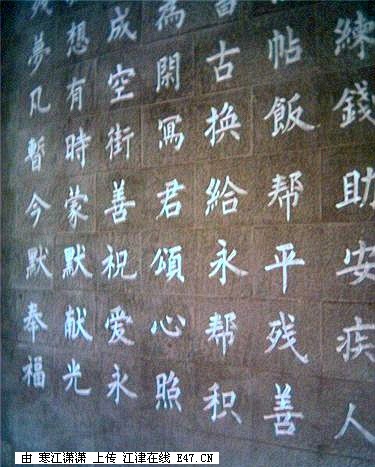 練錢助安疾人
帖飯帮平残善
古換給永帮积
為閑寫君頌心照
成空街善祝爱永
想有時蒙默献光
夢凡暫今默奉福
由 寒江潇潇 上传 江津在线 E47.CN